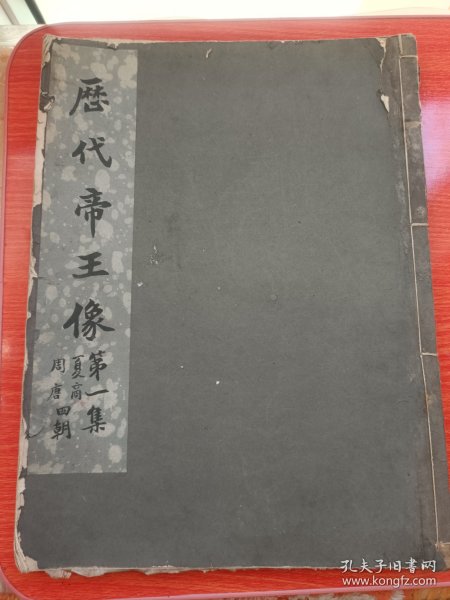 歷代帝王像
第一集
夏商
周唐
四朝
孔夫子旧书网
www.kongfz.com